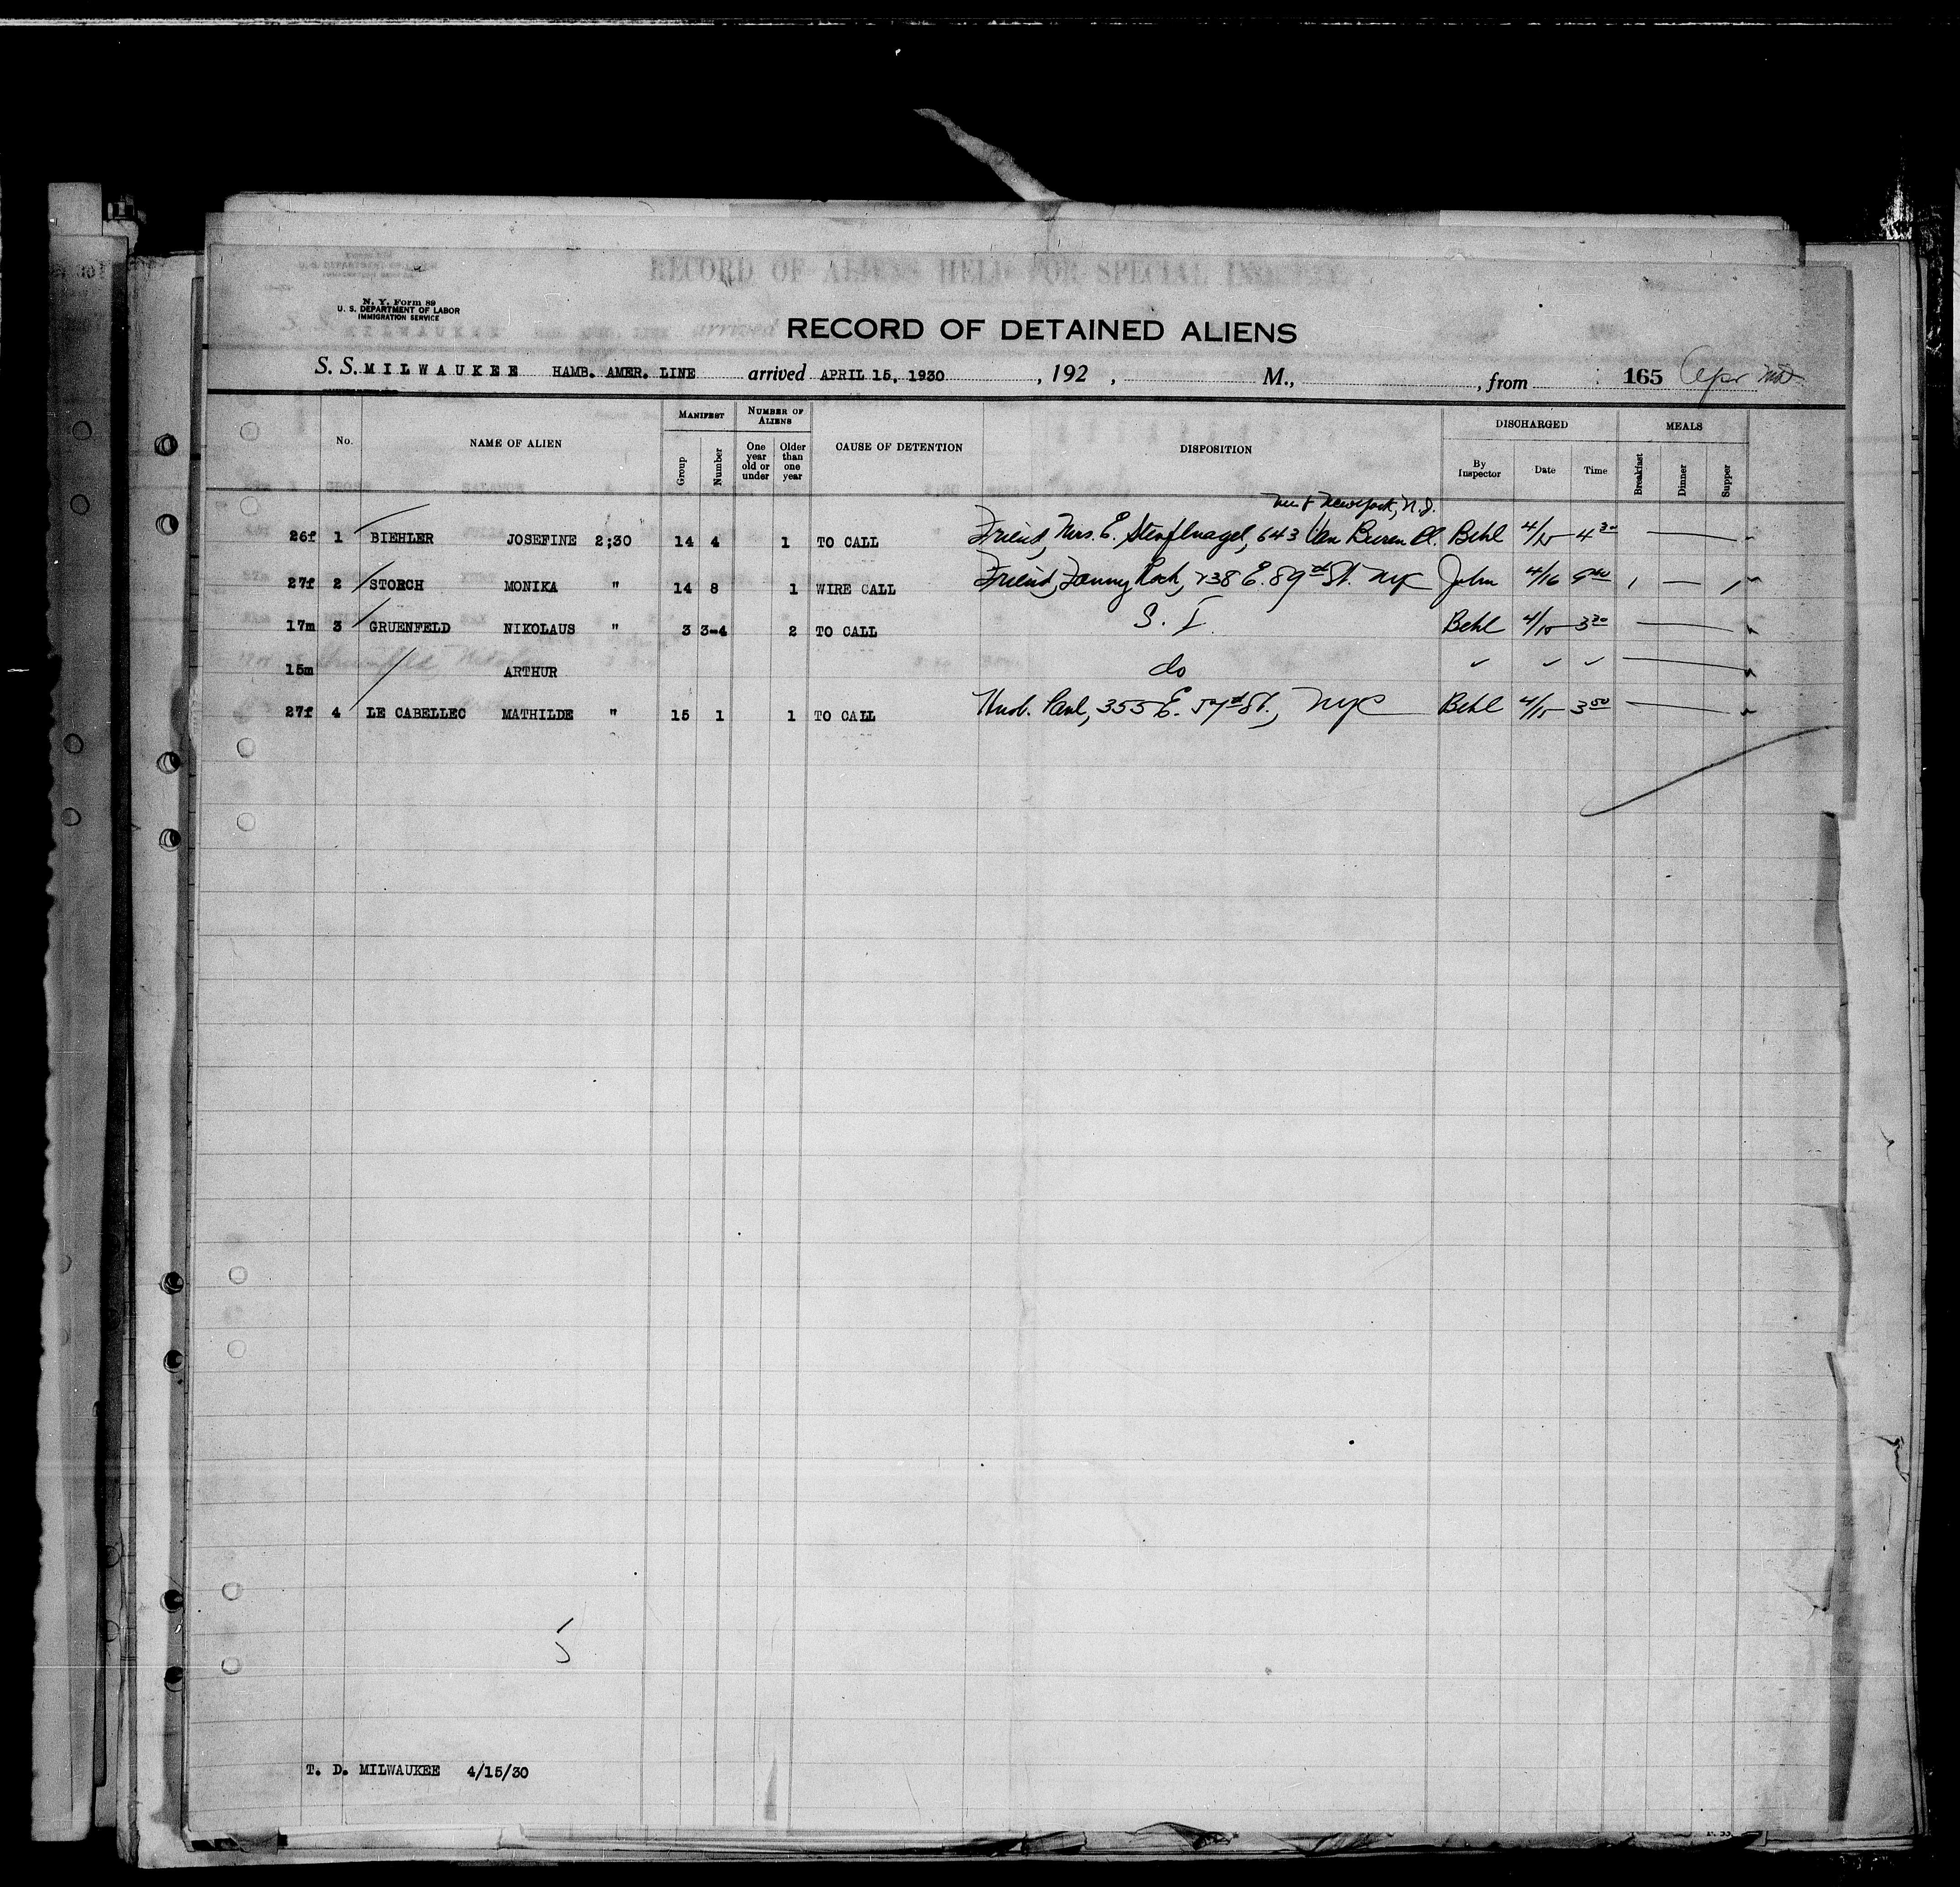 RECORD OF ALIENS HELD FOR SPECIAL INQUIRY
N. Y. Form 89
U. S. DEPARTMENT OF LABOR
IMMIGRATION SERVICE
RECORD OF DETAINED ALIENS
S. S. MILWAUKEE HAMB. AMER. LINE arrived APRIL 15, 1930 , 192 , M., , from 165
No. NAME OF ALIEN MANIFEST Group Number NUMBER OF ALIENS One year old or under Older than one year CAUSE OF DETENTION DISPOSITION DISCHARGED By Inspector Date Time MEALS Breakfast Dinner Supper
New York, N.J.
26f 1 BIEHLER JOSEFINE 2;30 14 4 1 TO CALL Friend, Mrs. E. 643 Van Buren Pl. Behl 4/15 4 30
27f 2 STORCH MONIKA " 14 8 1 WIRE CALL Friend, Fanny Koch, 238 E. 89 St. NYC John 4/16 9 40
17m 3 GRUENFELD NIKOLAUS " 3 3-4 2 TO CALL S. I. Behl 4/15 3 30
15m ARTHUR do
27f 4 LE CABELLEC MATHILDE " 15 1 1 TO CALL Husb. Paul, 355 E. 57 St., NYC Behl 4/15 3 50
5
T. D. MILWAUKEE 4/15/30